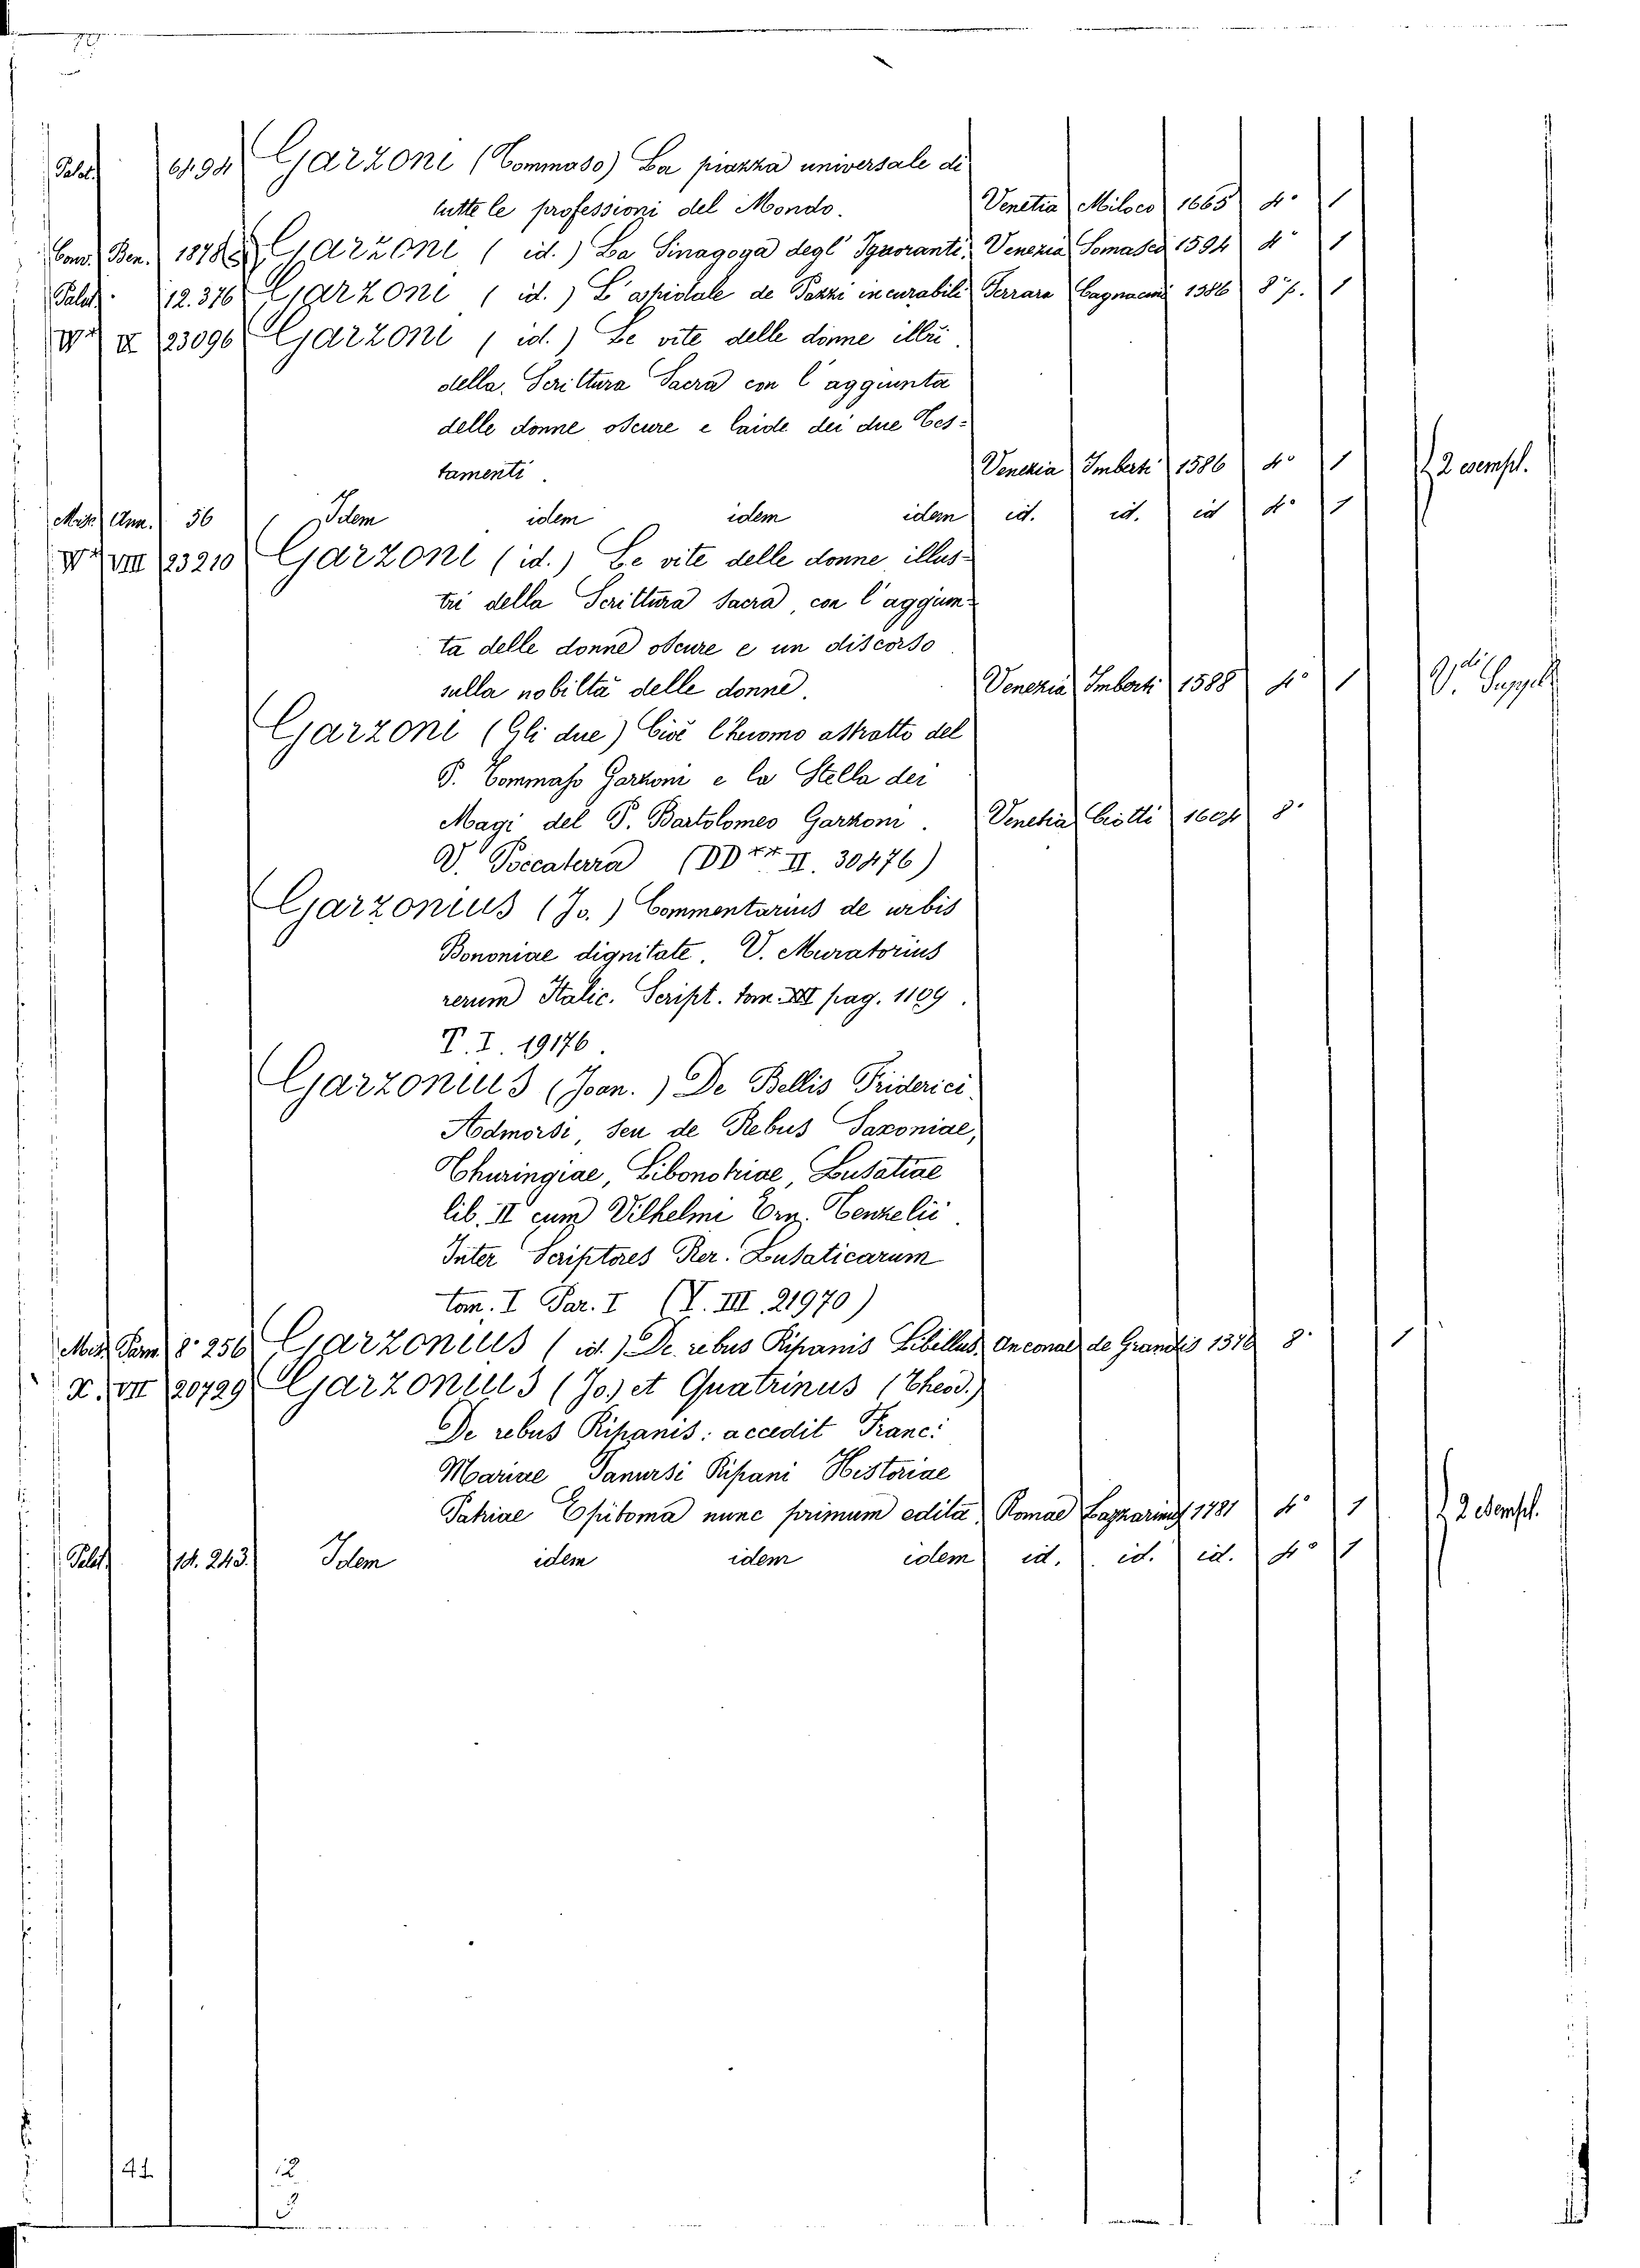 Palat. 6494 Garzoni (Tommaso) La piazza universale di
tutte le professioni del Mondo. Venetia Miloco 1665 4° 1
Cons. Ben. 1878 Garzoni ( id. ) La Sinagoga degl' Ignoranti. Venezia Somasco 1594 4° 1
Palat. 12.376 Garzoni ( id. ) L'aspidale de Pazzi incurabili Ferrara Cagnacini 1586 8° p. 1
II 23096 Garzoni ( id. ) Le vite delle donne illri
della Scrittura Sacra con l'aggiunta
delle donne oscure e laide dei due Tes-
tamenti. Venezia Imberti 1586 4° 1 2 esempl.
Misc. Ann. 56 Idem idem idem idem id. id. id 4° 1
VIII 23210 Garzoni (id.) Le vite delle donne illus-
tri della Scrittura Sacra, con l'aggiun-
ta delle donne oscure e un discorso
sulla nobiltà delle donne. Venezia Imberti 1588 4° 1 V. Suppel
Garzoni (Gli due) Cioè l'huomo astratto del
P. Tommaso Garzoni e la Stella dei
Magi del P. Bartolomeo Garzoni. Venetia Ciotti 1604 8°
V. Poccaterra (DD rr II. 30476)
Garzonius (Jo.) Commentarius de urbis
Bononiae dignitate. V. Muratorius
rerum Italic. Script. tom. XXI pag. 1109.
T. I. 19176.
Garzonius (Joan.) De Bellis Friderici
Admorsi, seu de Rebus Saxoniae,
Thuringiae, Libonotriae, Lusatiae
lib. II cum Vilhelmi Ern. Tenzelii.
Inter Scriptores Rer. Lusaticarum
tom. I Par. I (V. III. 21970)
Misc. Parm. 8° 256 Garzonius ( id.) De rebus Ripanis Libellus Anconae de Grandis 1576 8° 1
X. VII 20729 Garzonius (Jo.) et Quatrinus (Theod.)
De rebus Ripanis: accedit Franc:
Mariae Tanursi Ripani Historiae
Patriae Epitoma nunc primum edita. Romae Lazzarini 1781 4° 1 2 esempl.
Palat. 14. 243. Idem idem idem idem id. id. id. 4° 1
41 12
3